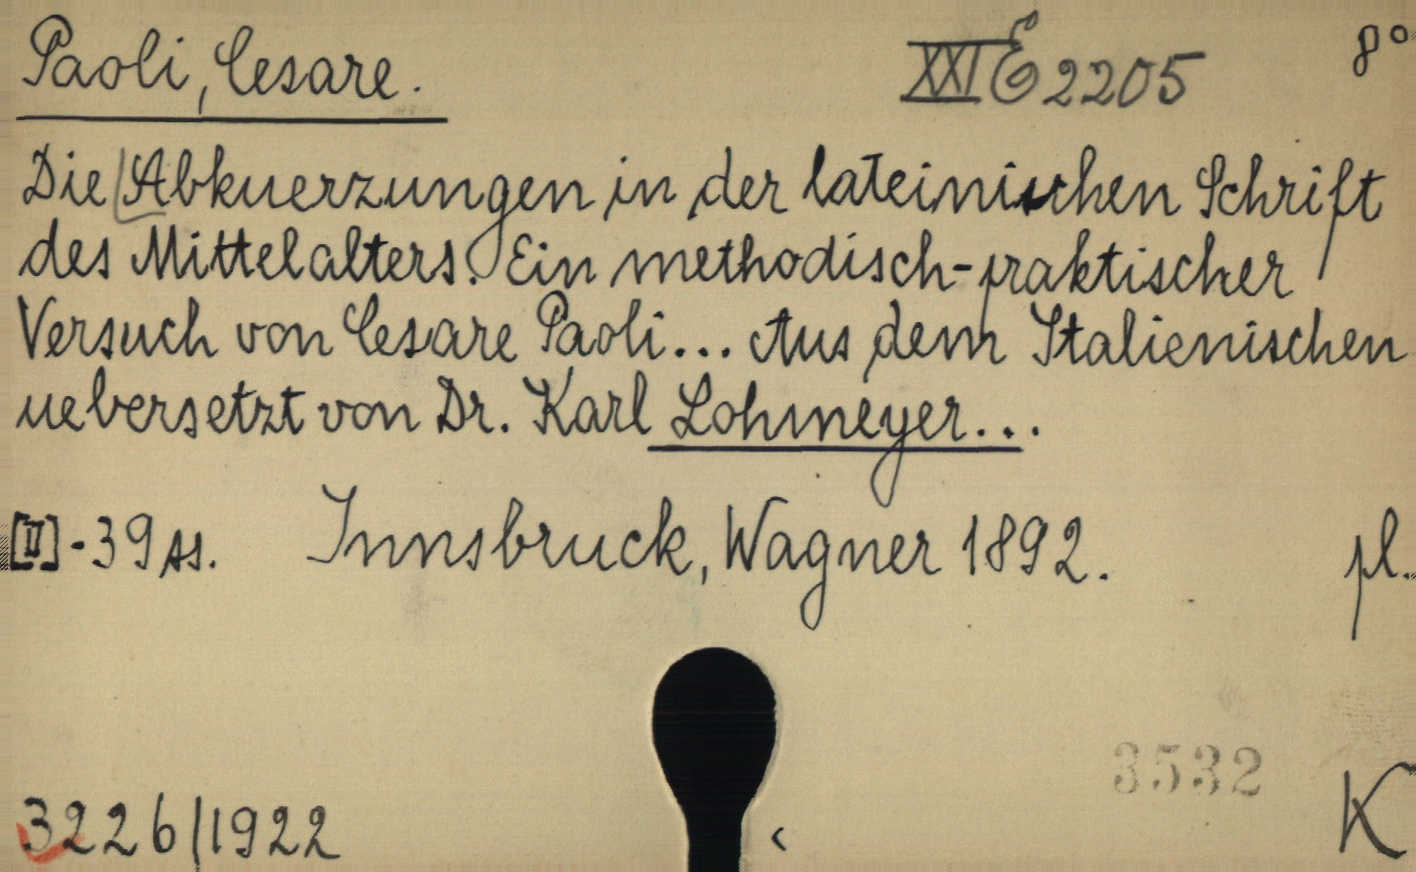 Paoli, Cesare. XXI E 2205 8°
Die [Abkuerzungen in der lateinischen Schrift
des Mittelalters. Ein methodisch-praktischer
Versuch von Cesare Paoli... Aus dem Italienischen
uebersetzt von Dr. Karl Lohmeyer...
[II]-39 ss. Innsbruck, Wagner 1892. pl.
3532
3226/1922 K